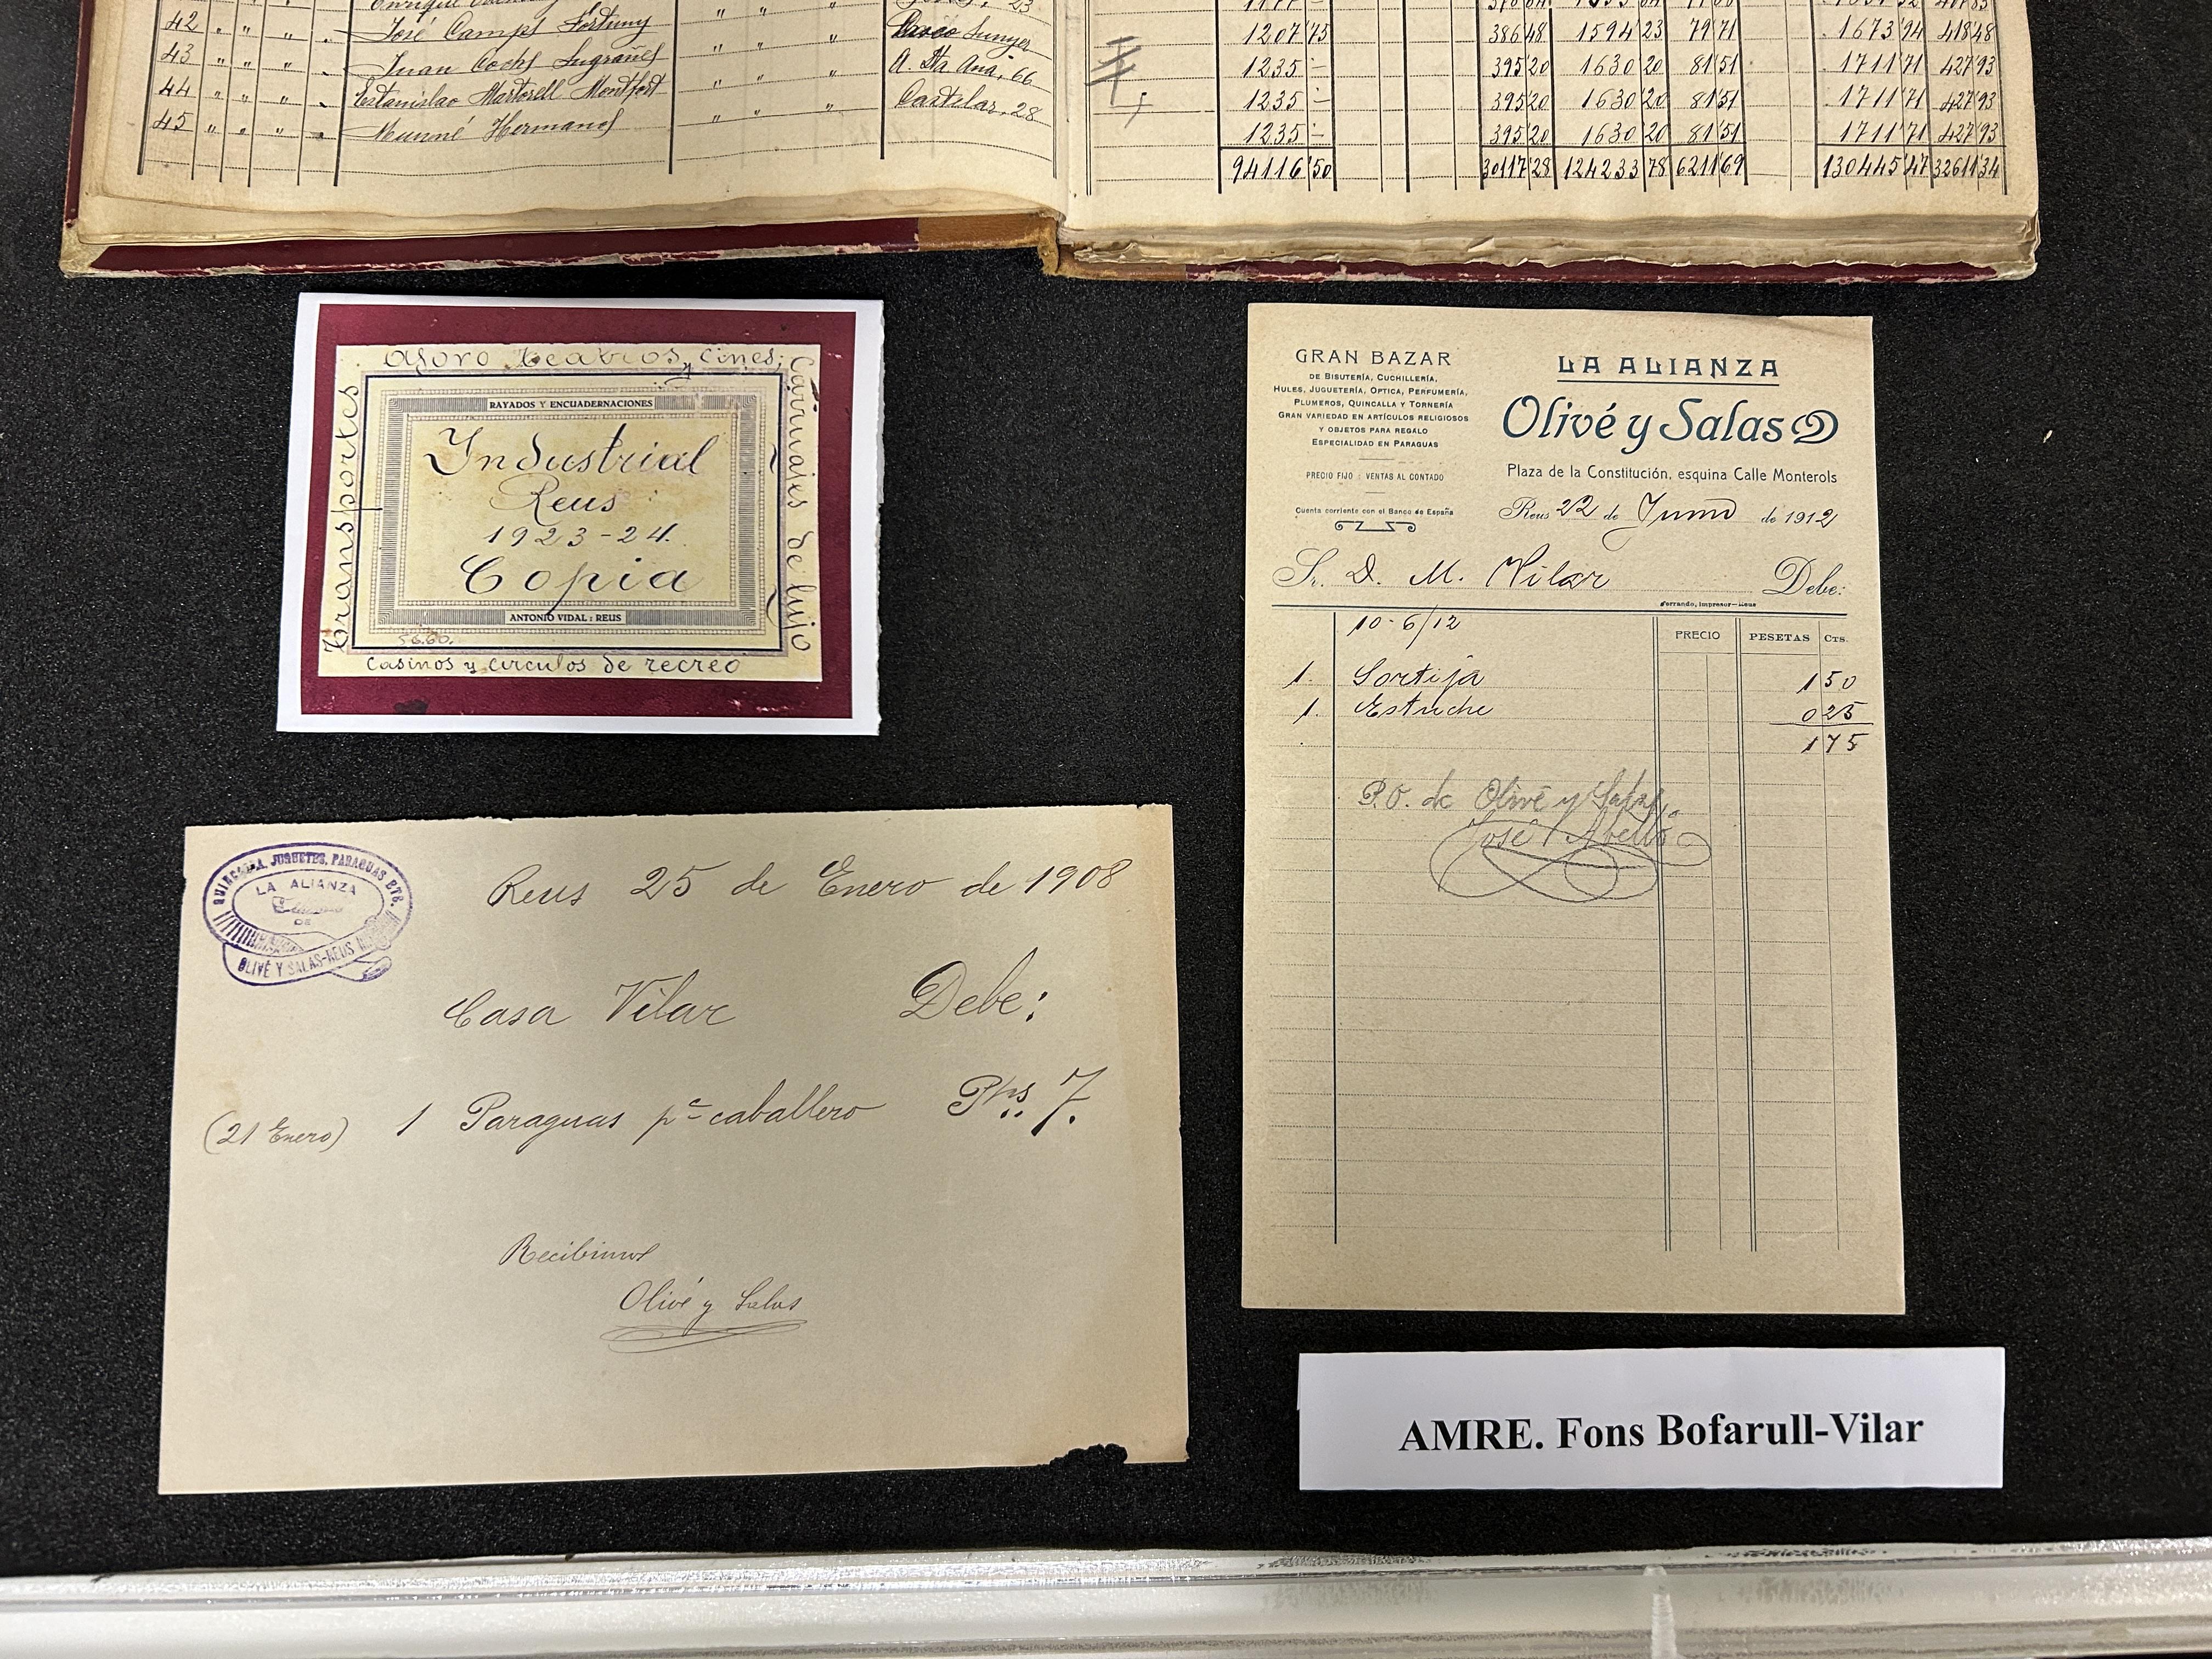 42 " " " José Camps Fortuny " " " Paseo Sunyer 1207 75 386 48 1594 23 79 71 1673 94 418 48
43 " " " Juan Cochs Sugrañes " " " A. Sta Ana, 66 1235 - 395 20 1630 20 81 51 1711 71 427 93
44 " " " Estanislao Martorell Montfort " " " Castelar, 28 1235 - 395 20 1630 20 81 51 1711 71 427 93
45 " " " Munné Hermanos " " " 1235 - 395 20 1630 20 81 51 1711 71 427 93
94116 50 30117 28 124233 78 6211 69 130445 47 32611 34
Aforo teatros y cines;
Carruajes de lujo
Transportes
RAYADOS Y ENCUADERNACIONES
Industrial
Reus:
1923-24.
Copia
ANTONIO VIDAL : REUS
Casinos y circulos de recreo
GRAN BAZAR
DE BISUTERÍA, CUCHILLERÍA,
HULES, JUGUETERÍA, OPTICA, PERFUMERÍA,
PLUMEROS, QUINCALLA Y TORNERÍA
GRAN VARIEDAD EN ARTÍCULOS RELIGIOSOS
Y OBJETOS PARA REGALO
ESPECIALIDAD EN PARAGUAS
PRECIO FIJO : VENTAS AL CONTADO
Cuenta corriente con el Banco de España
LA ALIANZA
Olivé y Salas
Plaza de la Constitución, esquina Calle Monterols
Reus 22 de Junio de 1912
Sr. D. M. Vilar Debe:
Ferrando, impresor—Reus
10-6/12 PRECIO PESETAS CTS.
1. Sortija 1 50
1. Estuche 0 25
1 75
P.O. de Olivé y Salas,
José Abelló
QUINCALLA, JUGUETES, PARAGUAS ETC.
LA ALIANZA
DE
OLIVÉ Y SALAS-REUS
Reus 25 de Enero de 1908
Casa Vilar Debe:
(21 Enero) 1 Paraguas pª caballero Pts. 7.
Recibimos
Olivé y Salas
AMRE. Fons Bofarull-Vilar